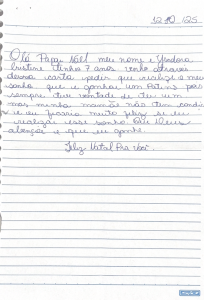 12 10 125
Olá Papai Noel meu nome e Yandora
tinho 7 anos venho através
dessa carta pedir que realize o meu
sonho que e ganhar um Patins pois
sempre tive vontade de ter um
mas minha mamãe não tem condi
e eu ficaria muito feliz se eu
realizar esse sonho. Que Deus
abençoe e que eu ganhe.
Feliz Natal Pra você.